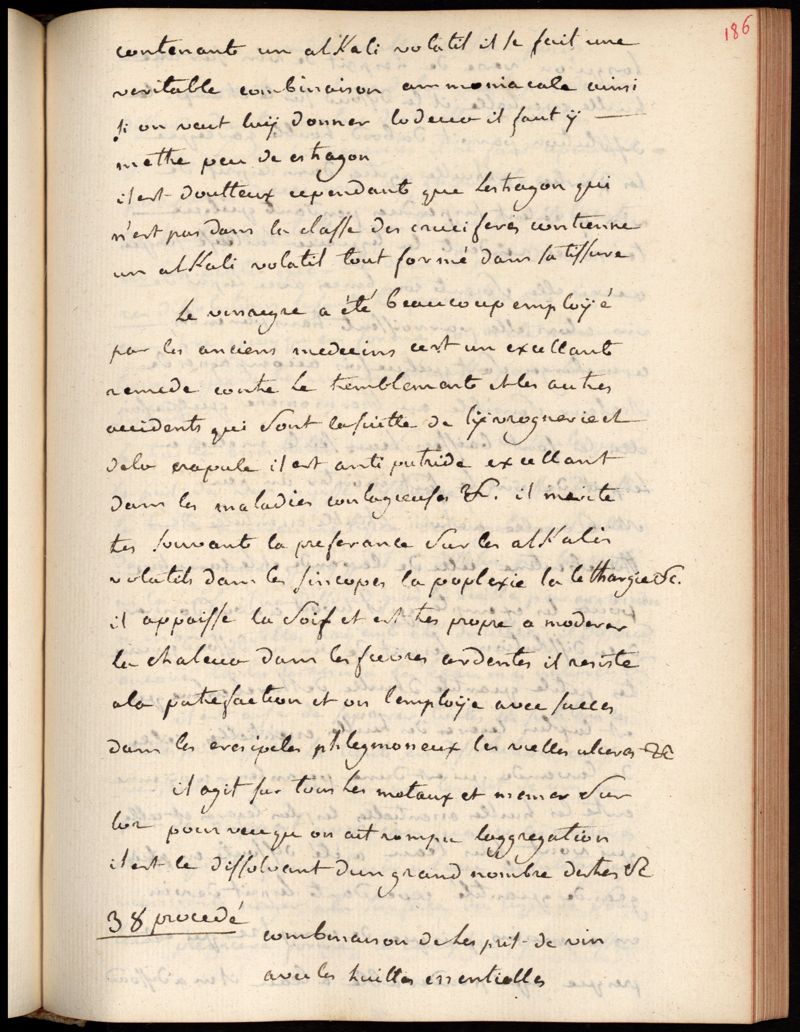 186
contenante un alKali volatil il se fait une
veritable combinaison ammoniacale ainsi
si on veut luÿ donner lodeur il faut ÿ
mettre peu de estragon
il est doutteux cependant que Lestragon qui
n'est pas dans la classe des cruciferes contienne
un alKali volatil tout formé dans sa tissure
Le vinaigre a été beaucoup emploÿé
par les anciens medecins cest un excellant
remede contre Le tremblemante et les autres
accidents qui sont la suitte de lÿvrognerie et
dela crapule il est anti putride excellant
dans les maladies contagieuses &c. il merite
tes souvante la preferance sur les alKalis
volatils dans les sincopes la poplexie la lethargie &c.
il appaisse la soif et est tres propre a moderer
la chaleur dans les fievres ardentes il resiste
ala putrefaction et on lemploÿe avec succes
dans les eresipeles phlegmoneux les vielles ulceres &c
il agit sur tous Les metaux et memes sur
lor pourveuqu on ait rompu laggregation
il est le dissolvant dun grand nombre dastres &c
38 procedé
combinaison de Lesprit-de vin
avec les huilles essentielles